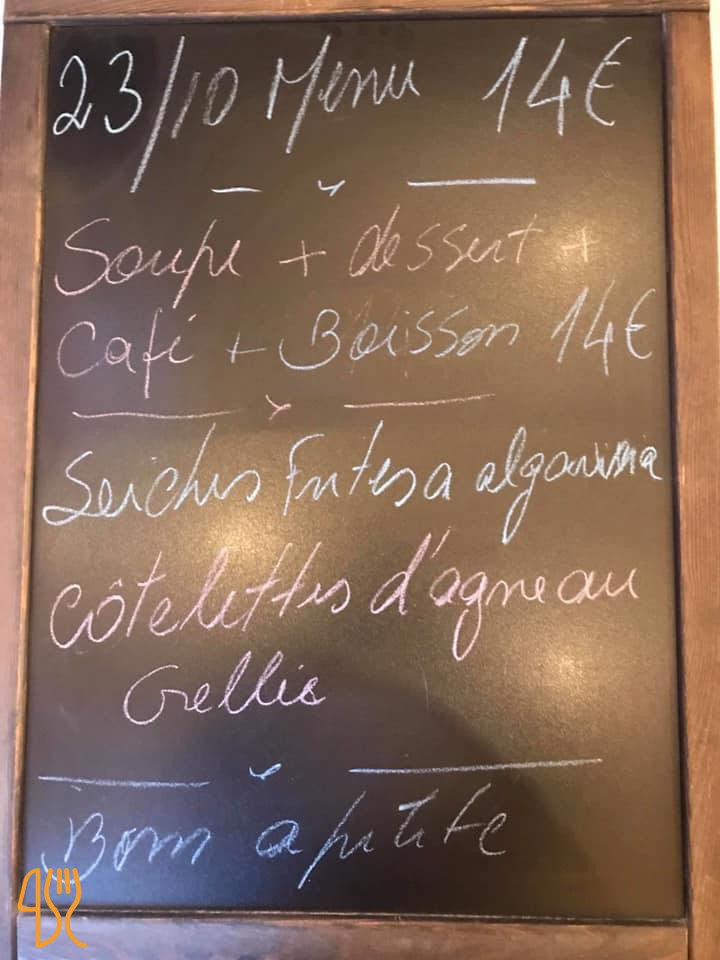 23/10 Menu 14€
Soupe + dessert +
Café + Boisson 14€
Seiches Frites a algarvia
Côtelettes d'agneau
Grellie
Bom apitite